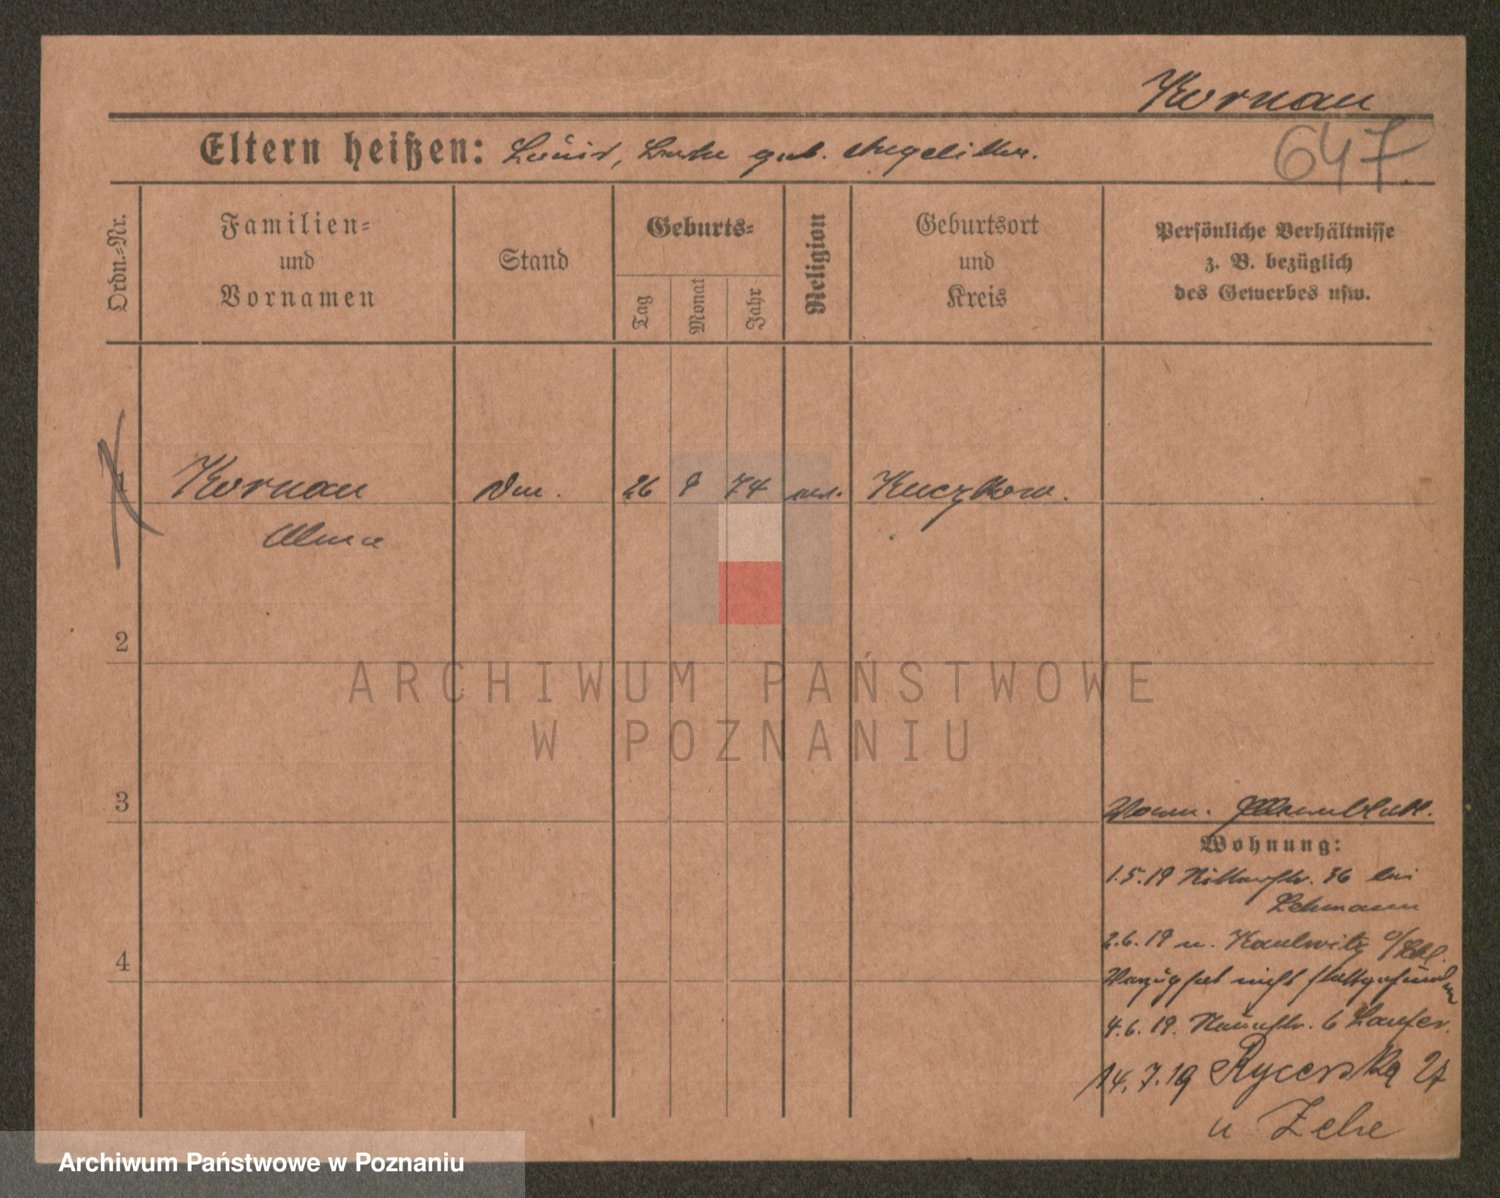 Kornau
647
Eltern heißen: Louis, geb. Angelika.
Ordn.=Nr.
Familien=
und
Vornamen
Stand
Geburts=
Tag
Monat
Jahr
Religion
Geburtsort
und
Kreis
Persönliche Verhältnisse
z. B. bezüglich
des Gewerbes usw.
1
Kornau
26
74
Kuczkow.
Alma
2
ARCHIWUM PAŃSTWOWE
W POZNANIU
3
Wohnung:
1.5.19 Ritterstr. 36 bei
Lehmann
4
2.6.19 n. Kaulwitz
Verzug hat nicht stattgefunden
4.6.19. Naumstr. 6
14.7.19 Rycerska 27
u Zehe
Archiwum Państwowe w Poznaniu